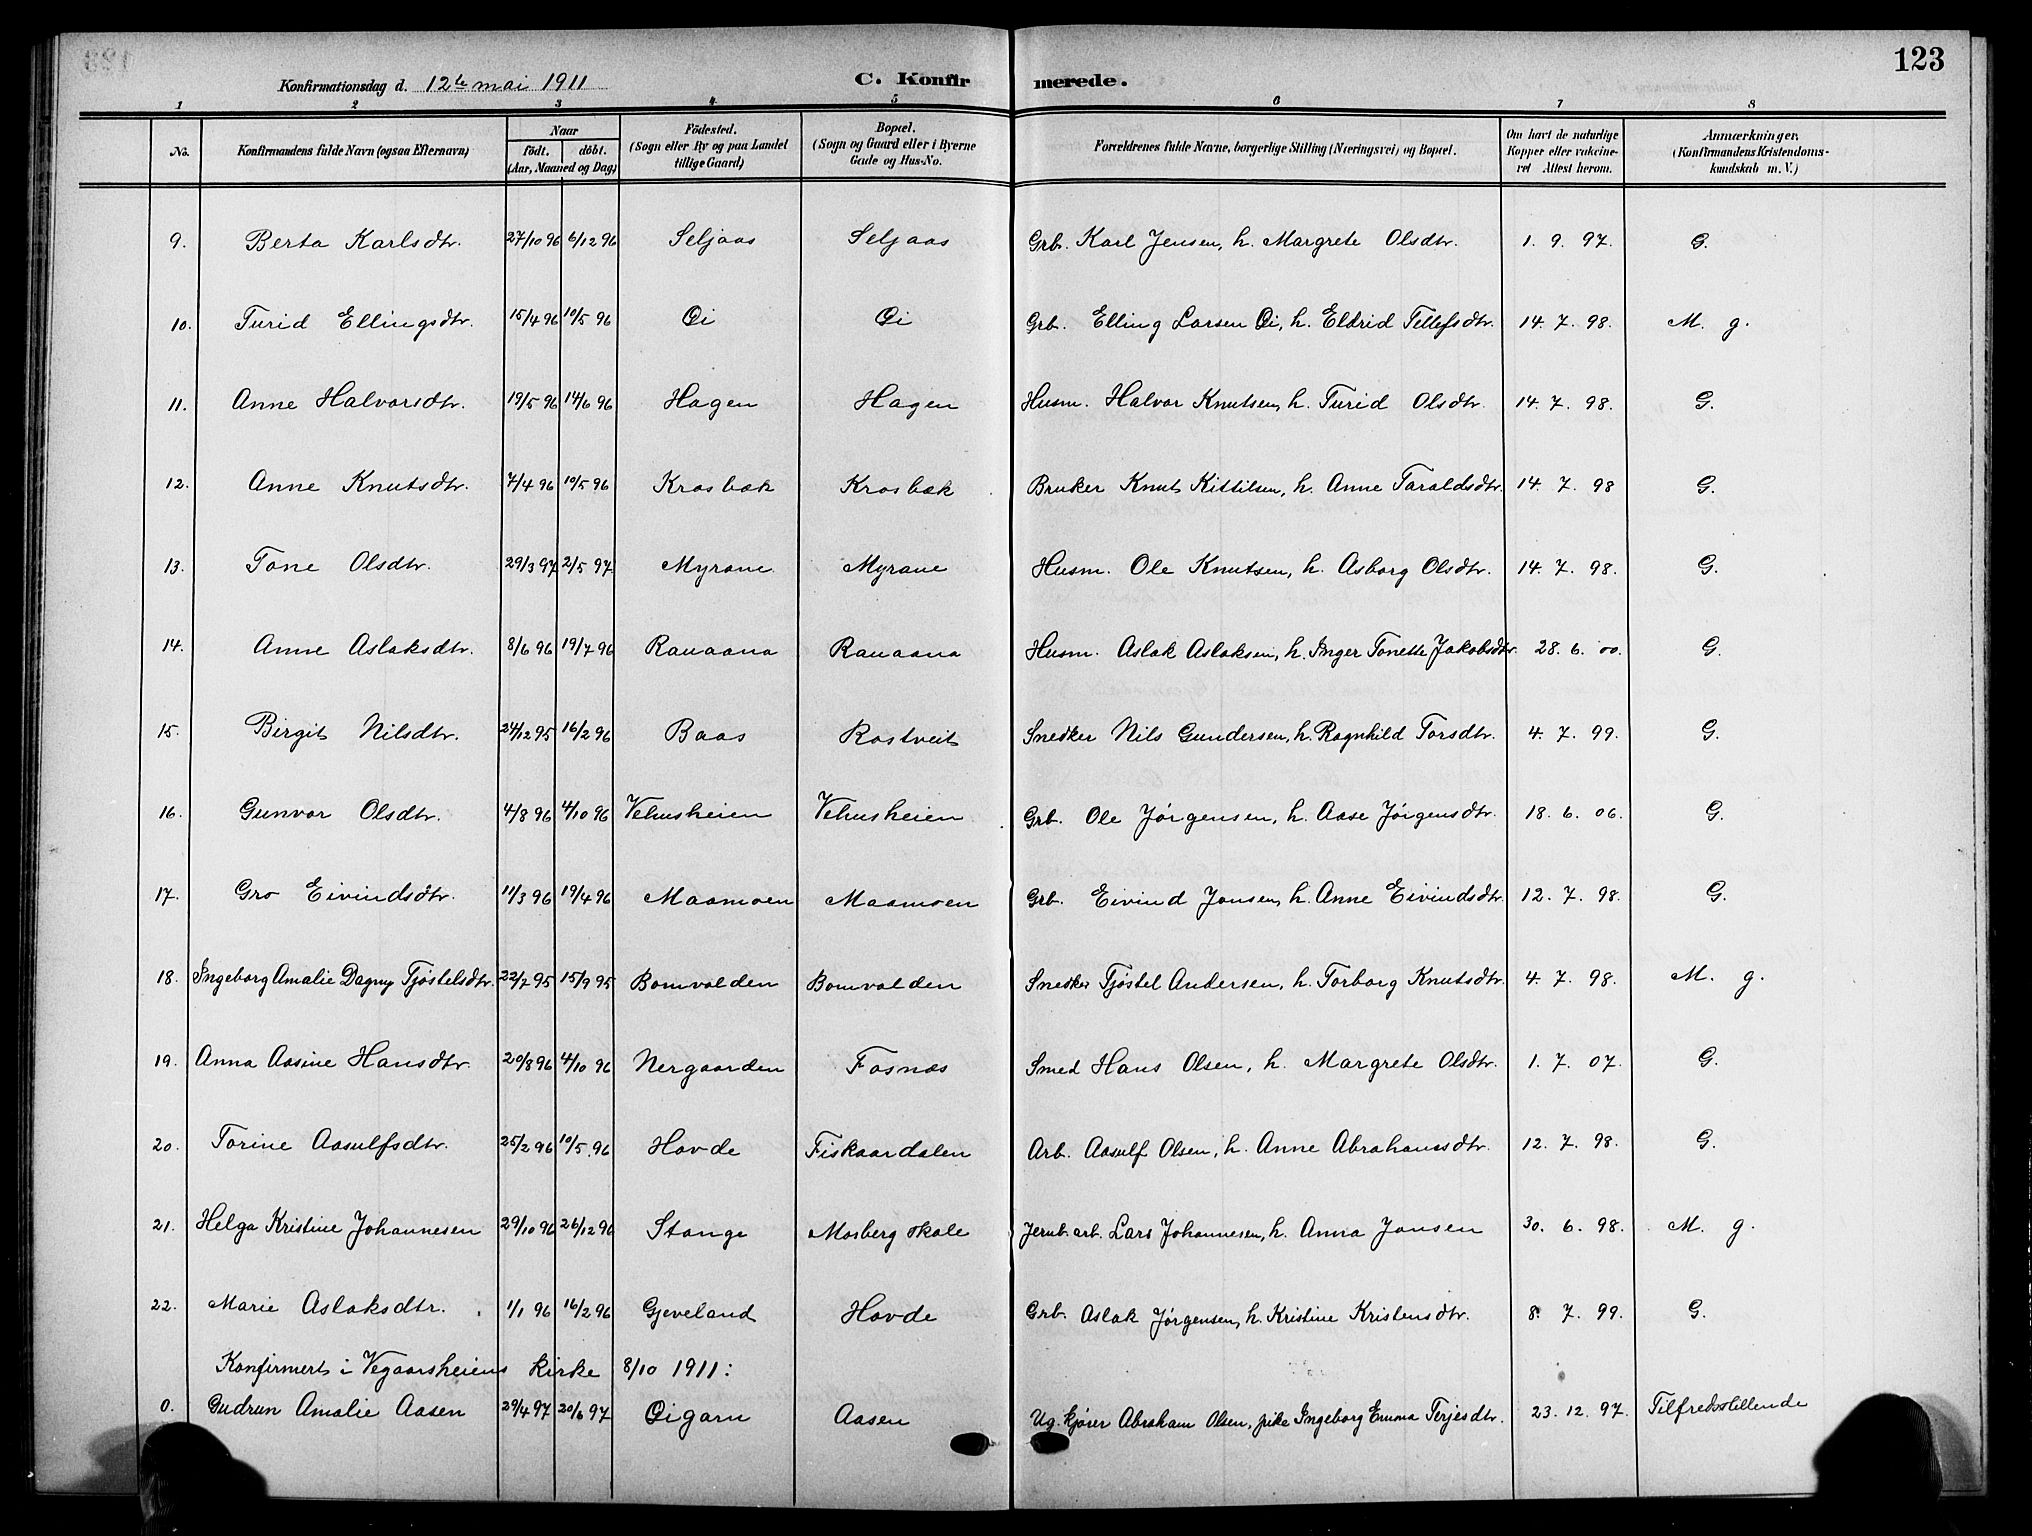 123
Konfirmationsdag d. 12te mai 1911 C. Konfirmerede.
1 2 3 4 5 6 7 8
No. Konfirmandens fulde Navn (ogsaa Efternavn) Naar födt. döbt. (Aar, Maaned og Dag) Födested. (Sogn eller By og paa Landet tillige Gaard) Bopæl. (Sogn og Gaard eller i Byerne Gade og Hus-No. Forældrenes fulde Navne, borgerlige Stilling (Næringsvei) og Bopæl. Om havt de naturlige Kopper eller vakcineret Attest herom. Anmærkninger. (Konfirmandens Kristendomskundskab m. V.)
9. Berta Karlsdtr. 27/10 96 6/12 96 Seljaas Seljaas Grb. Karl Jensen, h. Margrete Olsdtr. 1. 9. 97. G.
10. Turid Ellingsdtr. 15/4 96 10/5 96 Øi Øi Grb. Elling Larsen Øi, h. Eldrid Tellefsdtr. 14. 7. 98. M. g.
11. Anne Halvorsdtr. 19/5 96 14/6 96 Hagen Hagen Husm. Halvor Knutsen, h. Turid Olsdtr. 14. 7. 98. G.
12. Anne Knutsdtr. 7/4 96 10/5 96 Krosbæk Krosbæk Bruker Knut Kittilsen, h. Anne Taraldsdtr. 14. 7. 98 G.
13. Tone Olsdtr. 29/3 97 2/5 97 Myrane Myrane Husm. Ole Knutsen, h. Asborg Olsdtr. 14. 7. 98. G.
14. Anne Aslaksdtr. 8/6 96 19/7 96 Rauaana Rauaana Husm. Aslak Aslaksen, h. Inger Tonette Jakobsdtr. 28. 6. 00. G.
15. Birgit Nilsdtr. 24/12 95 16/2 96 Baas Rostveit Snedker Nils Gundersen, h. Ragnhild Torsdtr. 4. 7. 99. G.
16. Gunvor Olsdtr. 4/8 96 4/10 96 Vehusheien Vehusheien Grb. Ole Jørgensen, h. Aase Jørgensdtr. 18. 6. 06. G.
17. Gro Eivindsdtr. 11/3 96 19/4 96 Maamoen Maamoen Grb. Eivind Jonsen, h. Anne Eivindsdtr. 12. 7. 98. G.
18. Ingeborg Amalie Dagny Tjøstelsdtr. 22/7 95 15/9 95 Bomvolden Bomvolden Snedker Tjøstel Andersen, h. Torborg Knutsdtr. 4. 7. 98. M. g.
19. Anna Aasine Hansdtr. 20/8 96 4/10 96 Nergaarden Fosnæs Smed Hans Olsen, h. Margrete Olsdtr. 1. 7. 07. G.
20. Torine Aasulfsdtr. 25/2 96 10/5 96 Hovde Fiskaardalen Arb. Aasulf Olsen, h. Anne Abrahamsdtr. 12. 7. 98. G.
21. Helga Kristine Johannesen 29/10 96 26/12 96 Stange Mosberg skole Jernb.arb. Lars Johannesen, h. Anna Jonsen 30. 6. 98. M. g.
22. Marie Aslaksdtr. 1/1 96 16/2 96 Gjeveland Hovde Grb. Aslak Jørgensen, h. Kristine Kristensdtr. 8. 7. 99. G.
Konfirmert i Vegaarsheiens kirke 8/10 1911:
0. Gudrun Amalie Aasen 29/4 97 20/6 97 Øigarn Aasen Ug. kjører Abraham Olsen, pike Ingeborg Emma Terjesdtr. 23. 12. 97. Tilfredsstillende